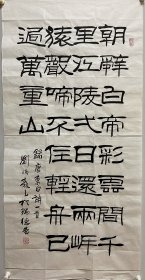 朝辭白帝彩雲間千
里江陵一日還兩岸
猿聲啼不住輕舟已
過萬重山
錄唐李白詩一首